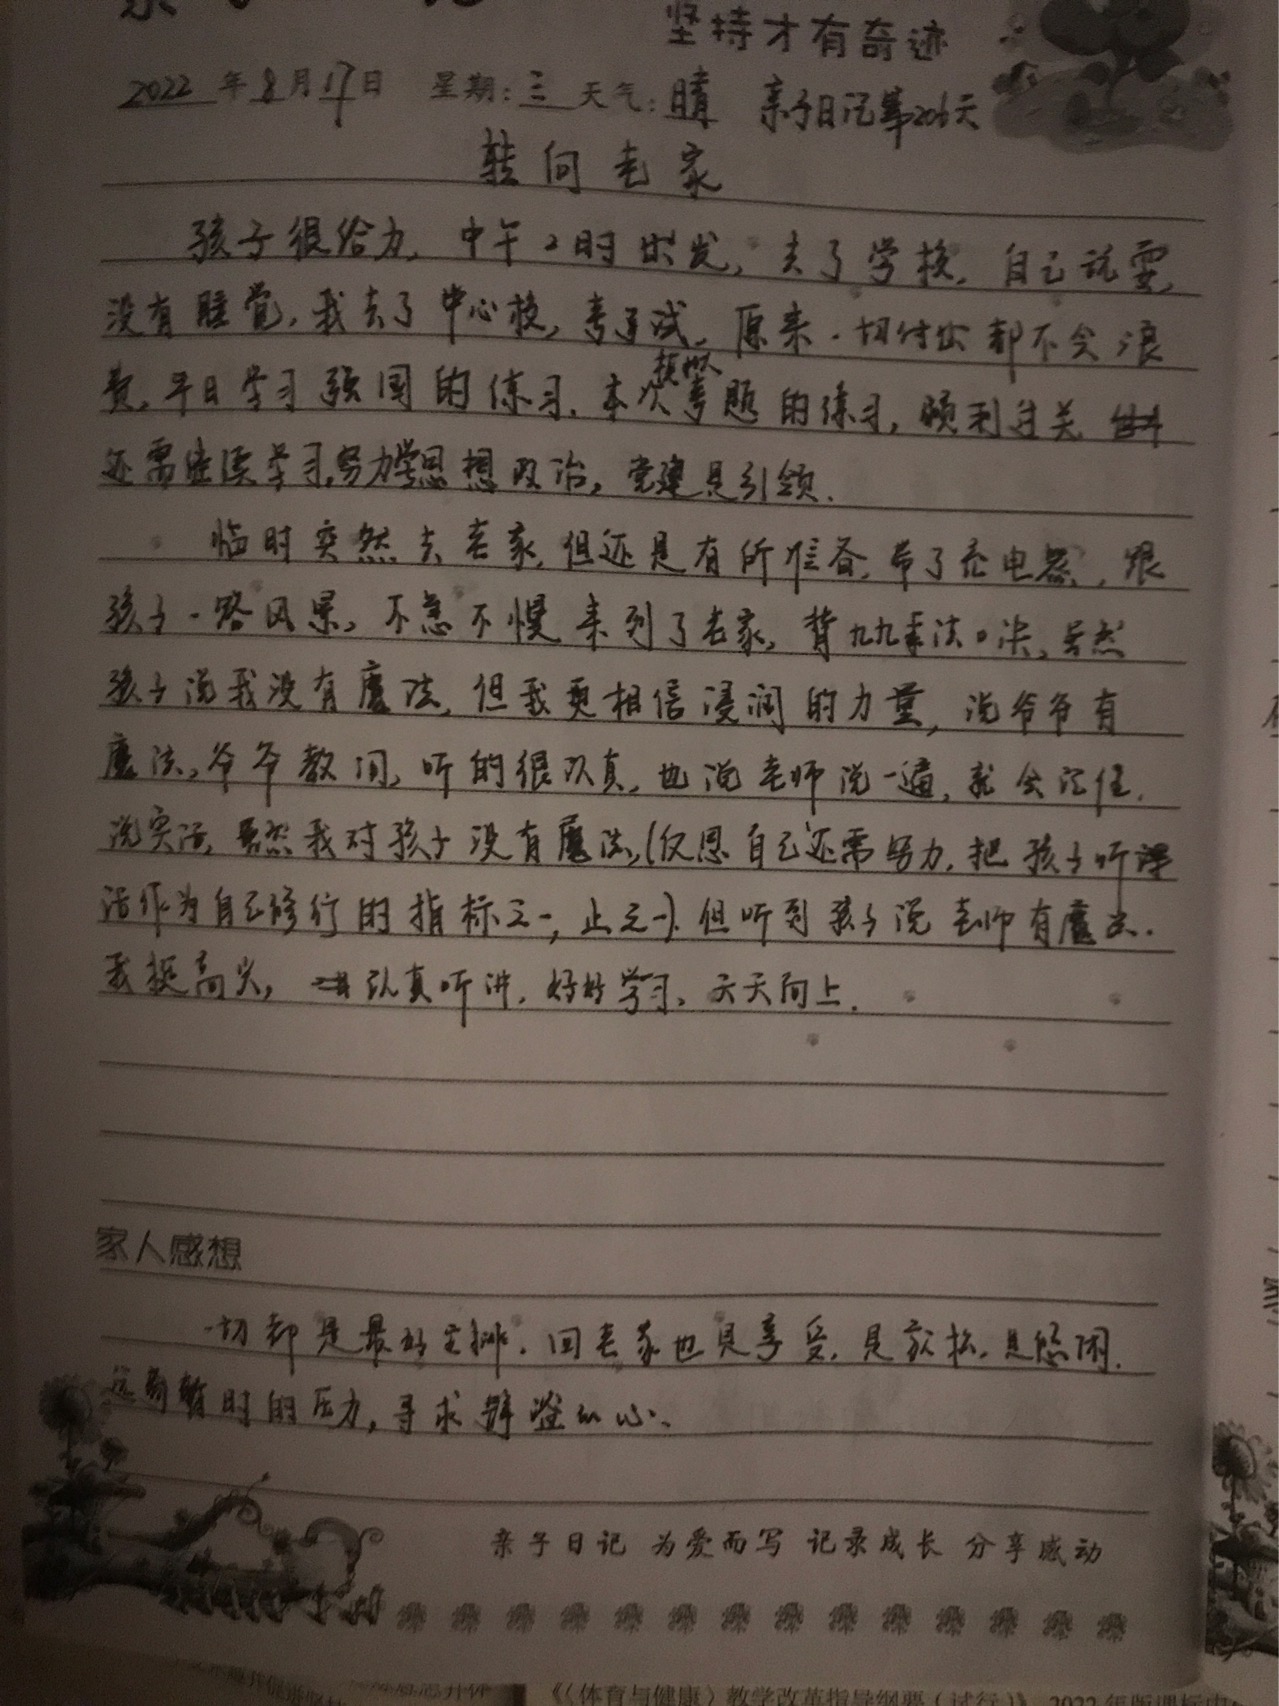 坚持才有奇迹
2022年8月17日 星期:三 天气:晴 亲子日记第206天
转向老家
孩子很给力，中午2时出发，去了学校，自己玩耍，
没有睡觉，我去了中心校，考了试，原来一切付出都不会浪
费，平日学习强国的练习，本次模拟考题的练习，顺利过关
还需继续学习，努力学思想政治，党建是引领.
临时突然去老家，但还是有所准备，带了充电器，跟
孩子一路风景，不急不慢来到了老家，背九九乘法口决，虽然
孩子说我没有魔法，但我更相信浸润的力量，说爷爷有
魔法，爷爷教问，听的很认真，也说老师说一遍，就会记住.
说实话，虽然我对孩子没有魔法，(反思自己还需努力，把孩子听
话作为自己修行的指标之一，止之一).但听到孩子说老师有魔法.
我挺高兴，认真听讲，好好学习，天天向上.
家人感想
一切都是最好安排，回老家也是享受，是放松，是悠闲.
暂时的压力，寻求 的心.
亲子日记 为爱而写 记录成长 分享感动
《〈体育与健康〉教学改革指导纲要（试行）》 2022年版课